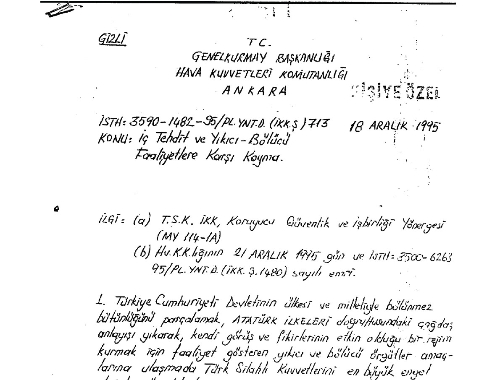 GİZLİ
T.C.
GENELKURMAY BAŞKANLIĞI
HAVA KUVVETLERİ KOMUTANLIĞI
ANKARA
KİŞİYE ÖZEL
İSTH: 3590-1482-95/PL.YNT.D.(İKK.Ş)713
18 ARALIK 1995
KONU: İç Tehdit ve Yıkıcı-Bölücü
Faaliyetlere Karşı Koyma.
İLGİ: (a) T.S.K. İKK, Koruyucu Güvenlik ve işbirliği Yönergesi
(MY 114-1A)
(b) Hv.K.K.lığının 21 ARALIK 1995 gün ve İSTH: 3500-6263
95/PL.YNT.D (İKK.Ş.1480) sayılı emri.
1. Türkiye Cumhuriyeti Devletinin ülkesi ve milletiyle bütünmez
bütünlüğünü parçalamak, ATATÜRK İLKELERİ doğrultusundaki çağdaş
anlayışı yıkarak, kendi görüş ve fikirlerinin etkin olduğu bir rejim
kurmak için faaliyet gösteren yıkıcı ve bölücü örgütler amaç-
larına ulaşmada Türk Silahlı Kuvvetlerini en büyük engel